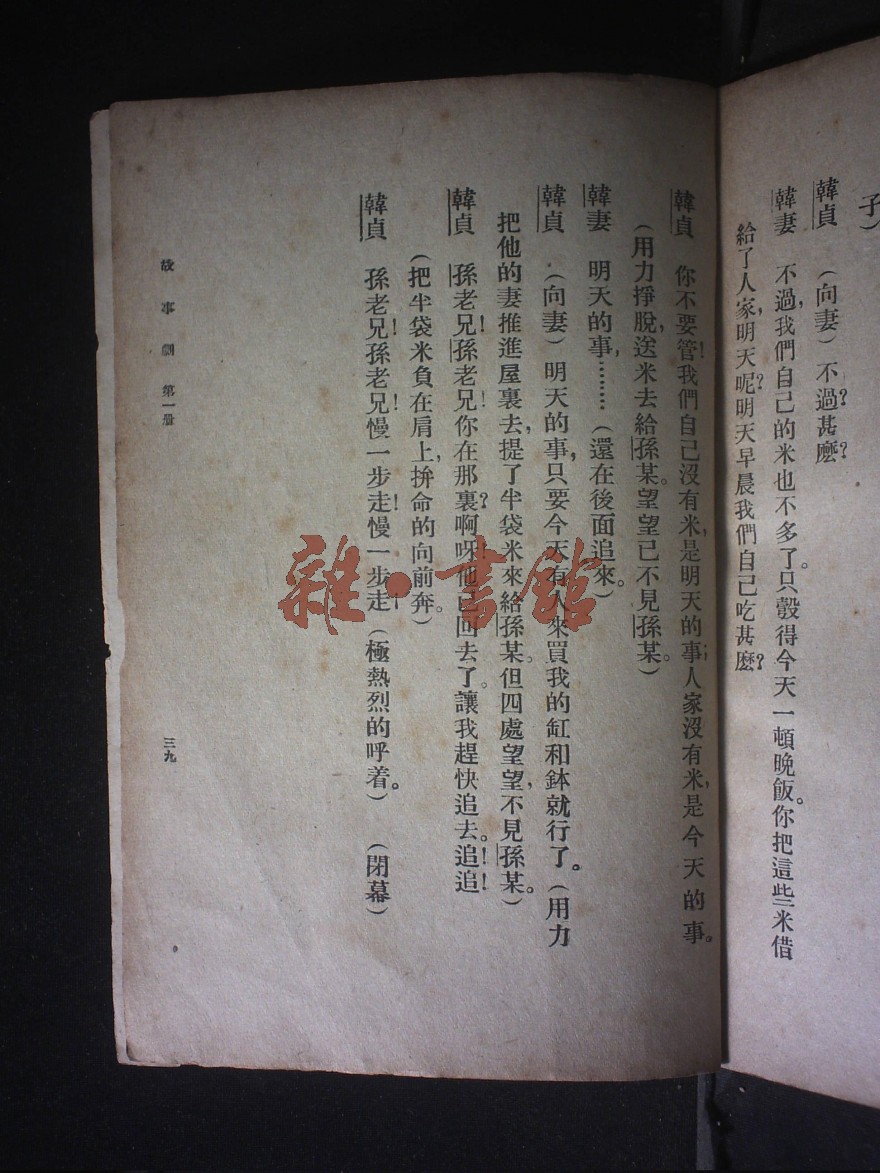 子）
韓貞　（向妻）不過甚麽？
韓妻　不過，我們自己的米也不多了。只彀得今天一頓晚飯。你把這些米借
給了人家，明天呢？明天早晨我們自己吃甚麽？
韓貞　你不要管！我們自己沒有米，是明天的事；人家沒有米，是今天的事。
（用力掙脫，送米去給孫某。望望已不見孫某。）
韓妻　明天的事，………（還在後面追來。）
韓貞　（向妻）明天的事，只要今天有人來買我的缸和鉢就行了。（用力
把他的妻推進屋裏去，提了半袋米來給孫某。但四處望望，不見孫某。）
韓貞　孫老兄！孫老兄！你在那裏？啊呀！他已回去了。讓我趕快追去。追！追！
（把半袋米負在肩上，拚命的向前奔。）
韓貞　孫老兄！孫老兄！慢一步走！慢一步走！（極熱烈的呼着。）　（閉幕）
故事劇　第一册
三九
雜·書館